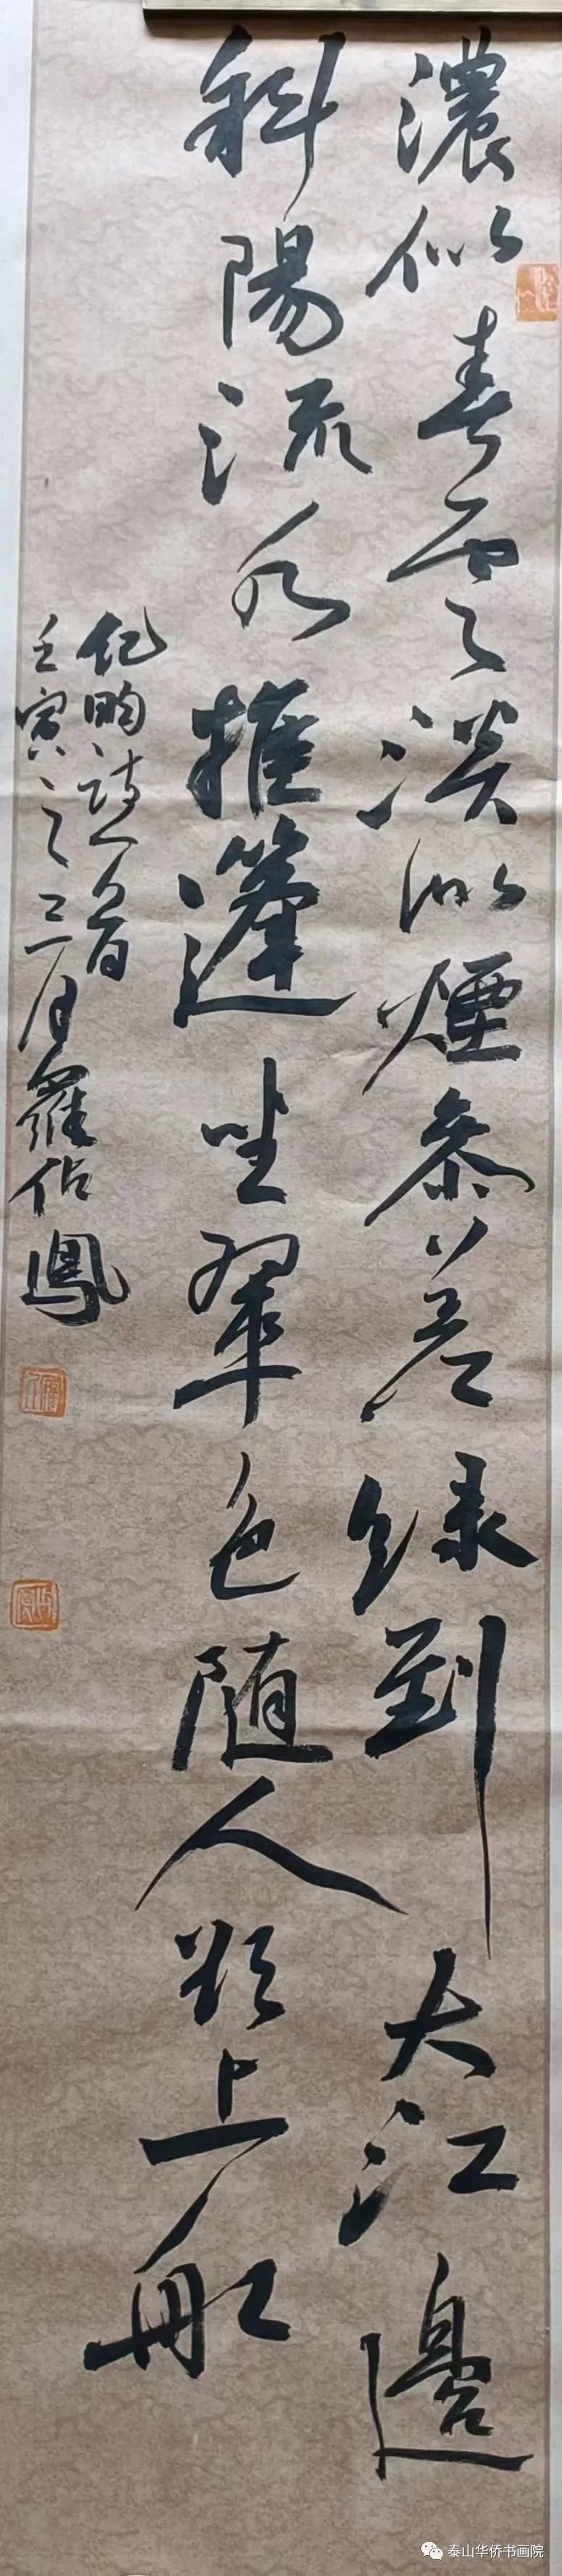 濃似春雲淡似煙參差緑到大江邊
斜陽流水推篷坐翠色随人欲上船
紀昀詩一首
壬寅之三月羅佔鳳
泰山华侨书画院